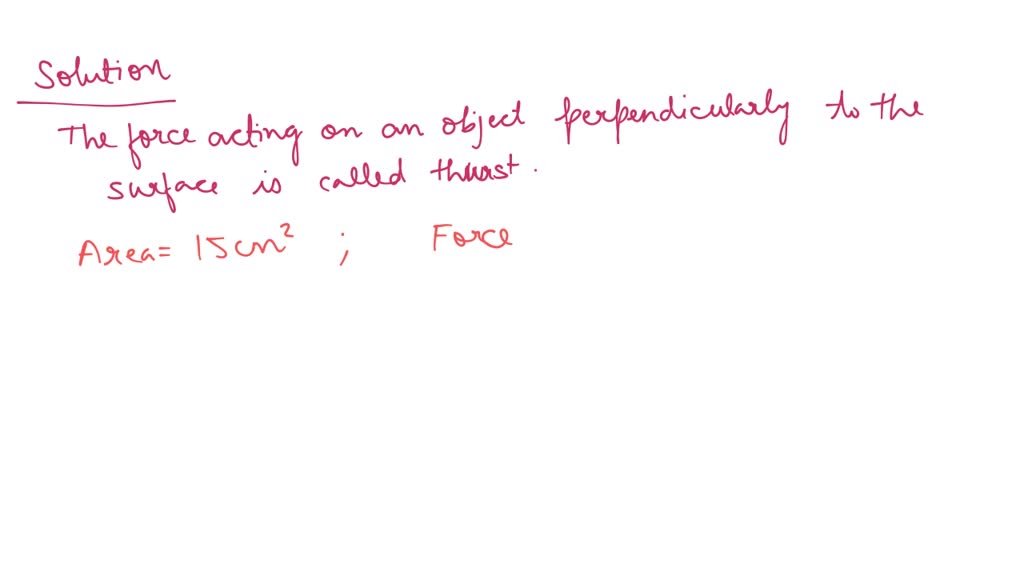 Solution
The force acting on an object perpendicularly to the
surface is called thrust.
Area = 15cm² ; Force